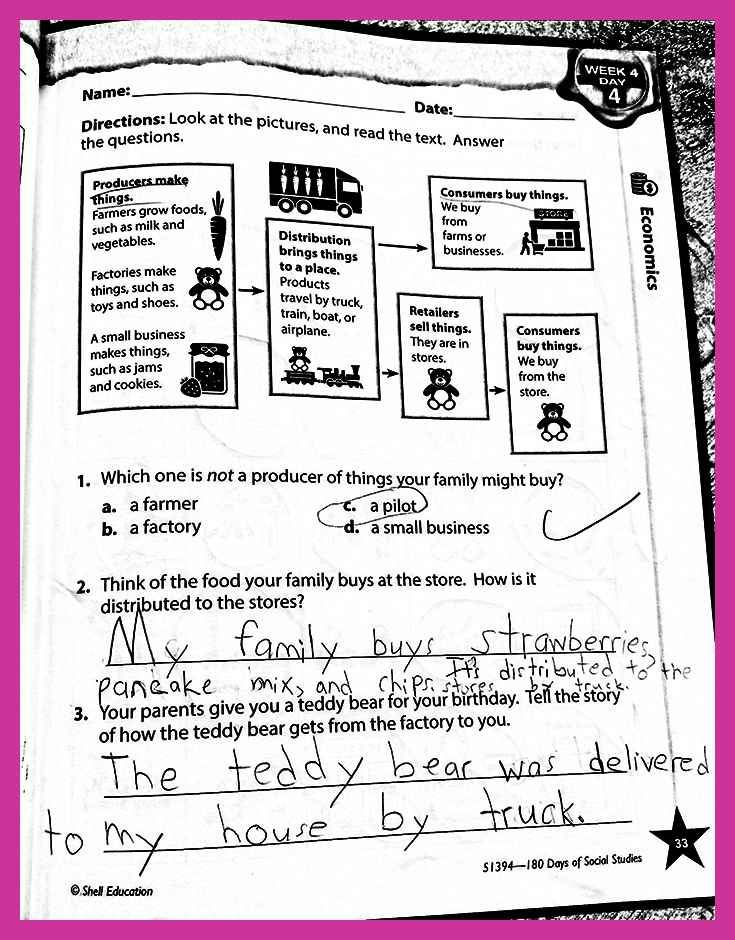 WEEK 4
DAY
4
Name:
Date:
Directions: Look at the pictures, and read the text. Answer
the questions.
Economics
Producers make
things.
Farmers grow foods,
such as milk and
vegetables.
Factories make
things, such as
toys and shoes.
A small business
makes things,
such as jams
and cookies.
Distribution
brings things
to a place.
Products
travel by truck,
train, boat, or
airplane.
Consumers buy things.
We buy
from
farms or
businesses.
STORE
Retailers
sell things.
They are in
stores.
Consumers
buy things.
We buy
from the
store.
1. Which one is not a producer of things your family might buy?
a. a farmer
b. a factory
c. a pilot
d. a small business
2. Think of the food your family buys at the store. How is it
distributed to the stores?
My family buys strawberries,
pancake mix, and chips. It's distributed to the
stores by truck.
3. Your parents give you a teddy bear for your birthday. Tell the story
of how the teddy bear gets from the factory to you.
The teddy bear was delivered
to my house by truck.
33
51394—180 Days of Social Studies
© Shell Education